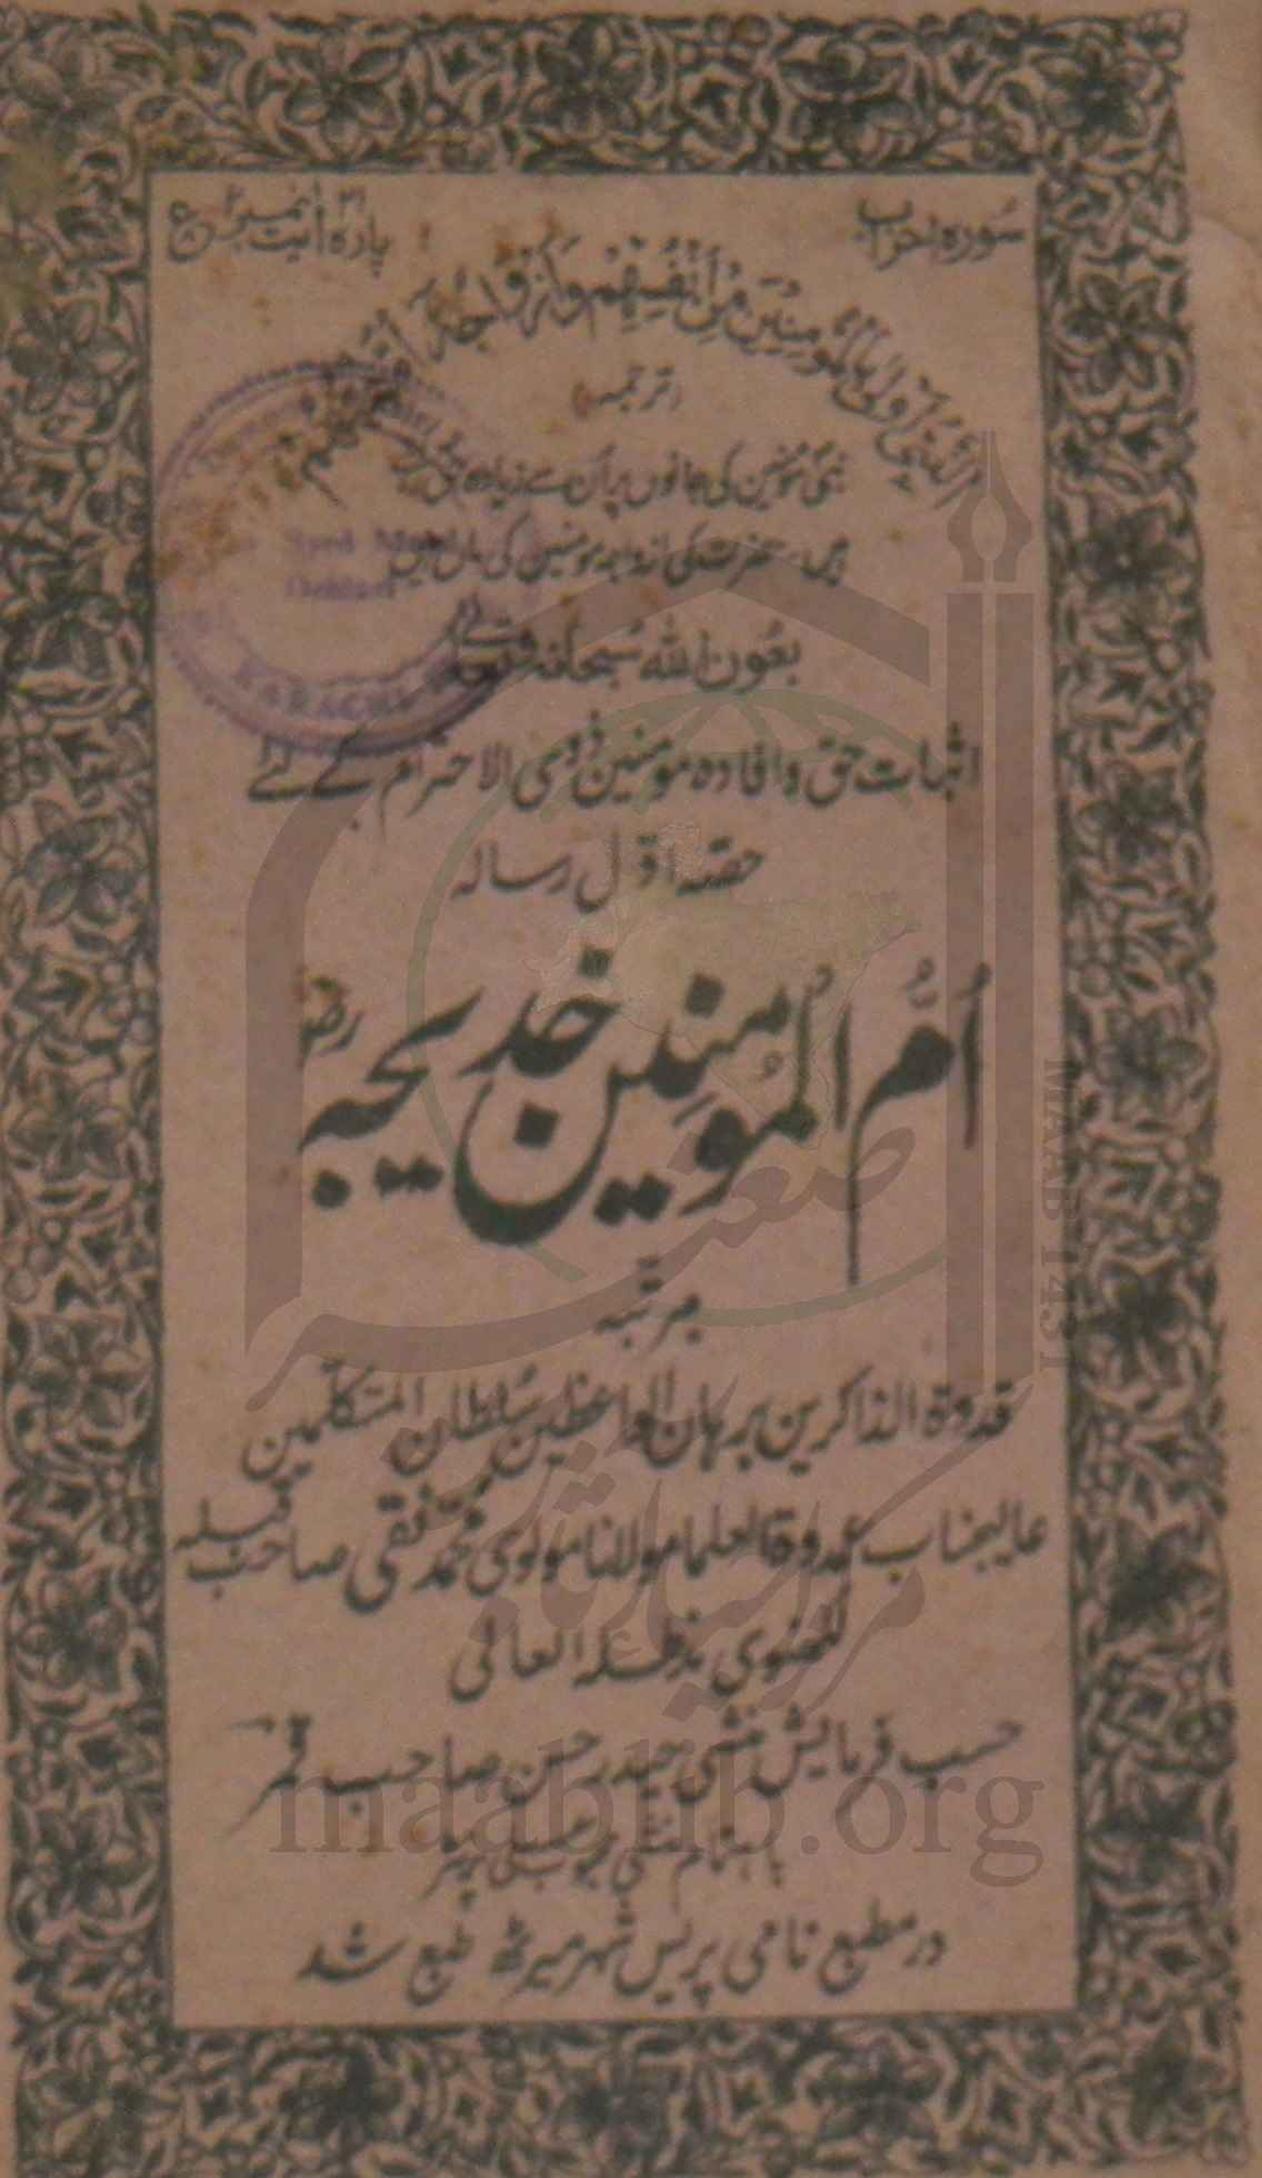 سورہ احزاب
پارہ ۲۱ آیت نمبر ۶
اَلنَّبِیُّ اَوْلٰی بِالْمُؤْمِنِیْنَ مِنْ اَنْفُسِهِمْ وَاَزْوَاجُهٗ اُمَّهٰتُهُمْ
(ترجمہ)
نبی مومنین کی جانوں پر اُن سے زیادہ حق رکھتے
ہیں حضرت کی ازواج مومنین کی مائیں ہیں
بعون اللہ سبحانہ وتعالیٰ
اثبات حق و افادہ مومنین ذوی الاحترام کے لئے
حصہ اول رسالہ
اُمُّ المُومِنِین خدیجہ رض
مرتبہ
قدوة الذاکرین برہان الواعظین سُلطان المتکلمین
عالیجناب عمدة العلما مولانا مولوی محمد نقی صاحب قبلہ
مدظلہ العالی
حسب فرمایش منشی حیدر حسن صاحب قمر
باہتمام منشی
در مطبع نامی پریس شہر میرٹھ طبع شد
Syed
KARACHI
MAAB 1431
maablib.org